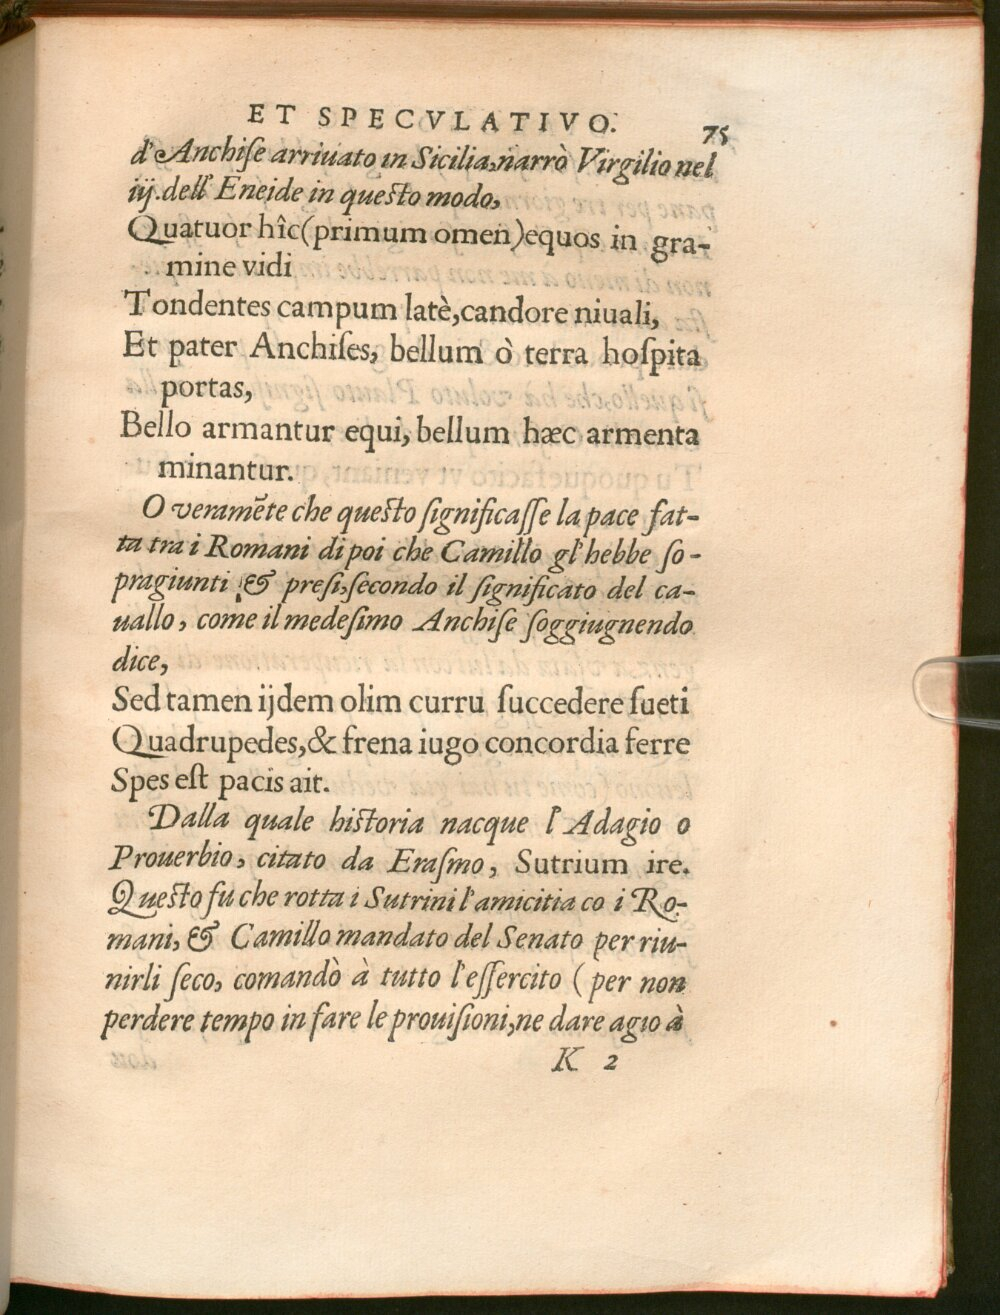 ET SPECVLATIVO. 75
d'Anchiſe arriuato in Sicilia, narrò Virgilio nel
iij. dell' Eneide in queſto modo,
Quatuor hîc (primum omen) equos in gra-
mine vidi
Tondentes campum latè, candore niuali,
Et pater Anchiſes, bellum ò terra hoſpita
portas,
Bello armantur equi, bellum hæc armenta
minantur.
O veramẽte che queſto ſignificaſſe la pace fat-
ta tra i Romani di poi che Camillo gl'hebbe ſo-
pragiunti & preſi, ſecondo il ſignificato del ca-
uallo, come il medeſimo Anchiſe ſoggiugnendo
dice,
Sed tamen ijdem olim curru ſuccedere ſueti
Quadrupedes, & frena iugo concordia ferre
Spes eſt pacis ait.
Dalla quale hiſtoria nacque l'Adagio o
Prouerbio, citato da Eraſmo, Sutrium ire.
Queſto fu che rotta i Sutrini l'amicitia co i Ro-
mani, & Camillo mandato del Senato per riu-
nirli ſeco, comandò à tutto l'eſſercito (per non
perdere tempo in fare le prouiſioni, ne dare agio à
K 2